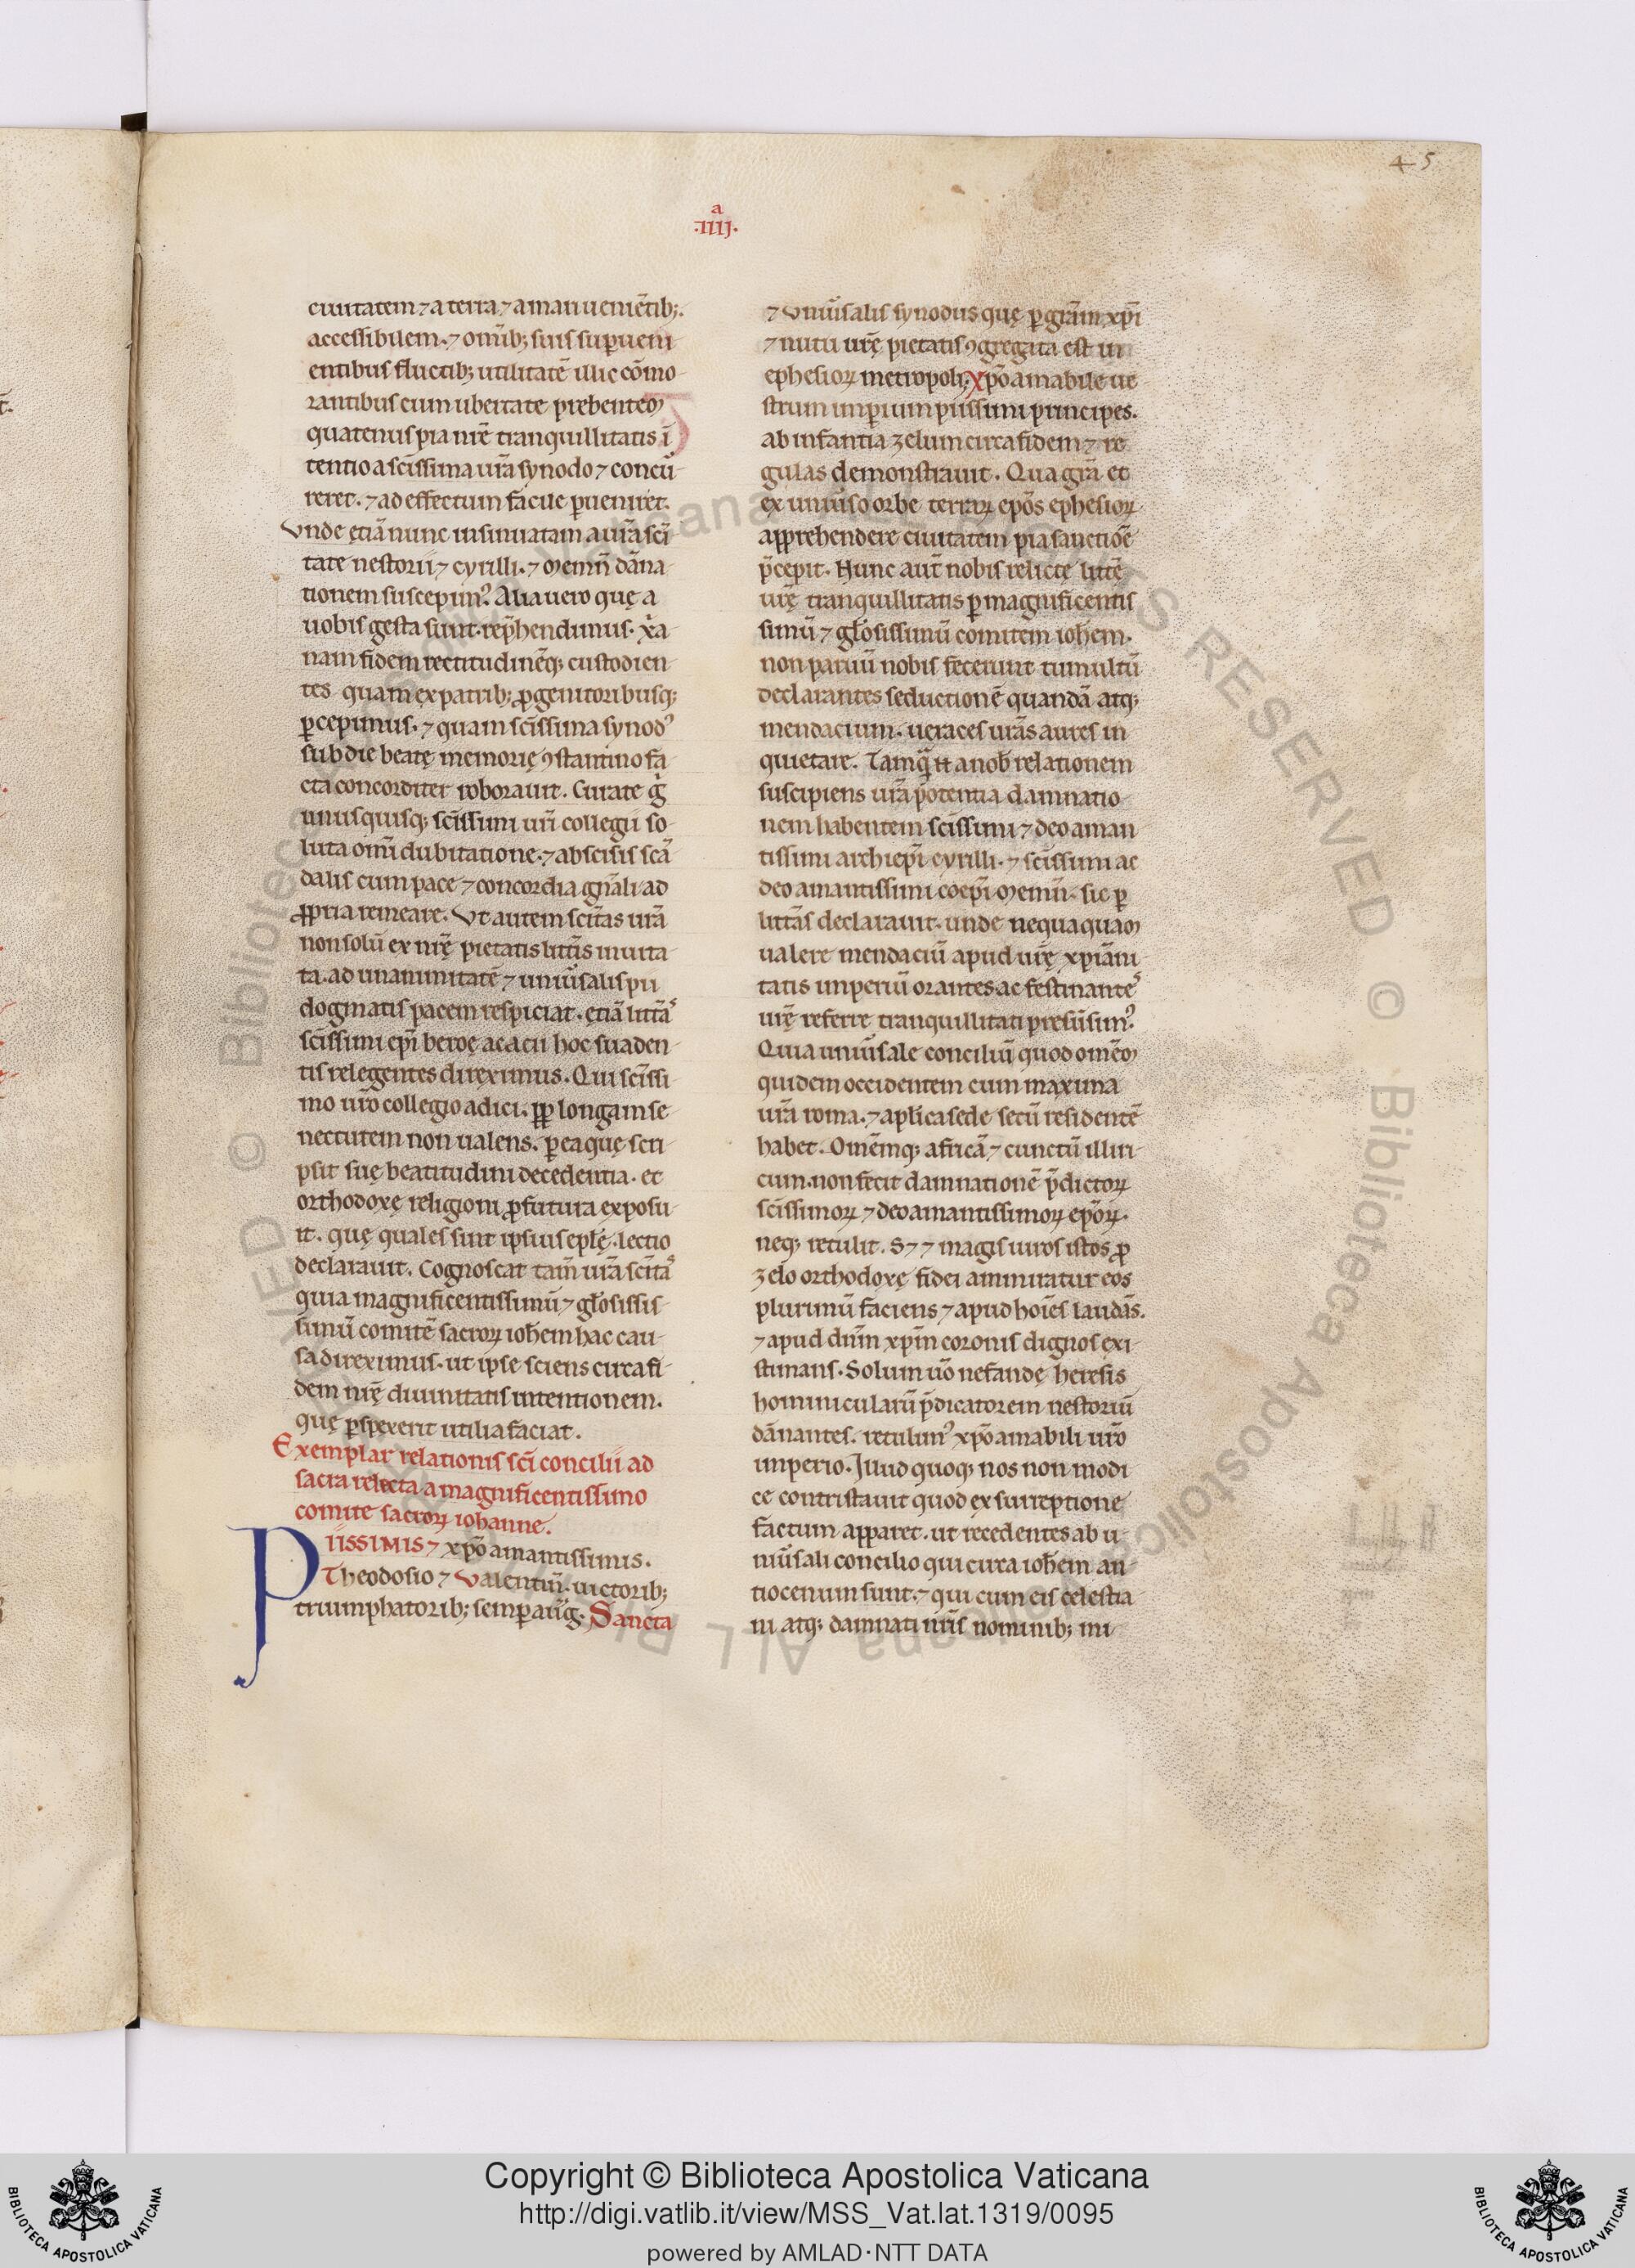 45
a
·IIIJ·
ciuitatem ⁊ a terra ⁊ a mari ueniẽtib;.
accessibilem. ⁊ om̃ib; suis sup̱ueni
entibus fluctib; utilitatẽ illic cõmo
rantibus cum ubertate prebentem
quatenus pia nr̃ẽ tranquillitatis ĩ
tentio a sc̃issima ur̃a synodo ⁊ concũ
reret. ⁊ ad effectum facile p̱ueniret.
Vnde ętiã nunc insinuatam a ur̃a sc̃i
tate nestorii ⁊ cyrilli. ⁊ memñ dãna
tionem suscepim᾿. Alia uero quę a
uobis gesta sunt. rep̃hendimus. x̃a
nam fidem rectitudinẽq; custodien
tes quam ex patrib; ꝓgenitoribusq;
p̱cepimus. ⁊ quam sc̃issima synod᾿
sub die beatę memorię ꝯstantino fa
cta concorditer roborauit. Curate g̊
unusquisq; sc̃issimi ur̃i collegii so
luta om̃i dubitatione. ⁊ abscisis scã
dalis cum pace ⁊ concordia gñali ad
ꝓpria remeare. Vt autem sc̃itas ur̃a
non solũ ex nr̃ę pietatis litt̃is inuita
ta. ad unanimitatẽ ⁊ uniũsalis pii
dogmatis pacem respiciat. ętiã litt̃as
sc̃issimi ep̃i beroę acacii hoc suaden
tis relegentes direximus. Qui sc̃issi
mo ur̃o collegio adici. ꝓp̱ longam se
nectutem non ualens. p̱ ea quę scri
psit suę beatitudini decedentia. et
orthodoxę religioni ꝓfutura exposu
it. quę quales sint ipsius ep̃lę. lectio
declarauit. Cognoscat tam̃ ur̃a sc̃itas
quia magnificentissimũ ⁊ gl̃osissis
simũ comitẽ sacroꝝ ioh̃em hac cau
sa direximus. ut ipse sciens circa fi
dem nr̃ę diuinitatis intentionem.
quę p̱spexerit utilia faciat.
Exemplar relationis sc̃i concilii ad
sacra relecta a magnificentissimo
comite sacroꝝ iohanne.
PIISSIMIS ⁊ xp̃o amantissimis.
Theodosio ⁊ Valentiñ. uictorib;
triumphatorib; semp̱ aug̃. Sancta
⁊ Vniũsalis synodus quę p̱ gr̃am xp̃i
⁊ nutu ur̃ę pietatis ꝯgregata est in
ephesioꝝ metropoli. Xp̃o amabile ue
strum imp̱ium piissimi principes.
ab infantia zelum circa fidem ⁊ re
gulas demonstrauit. Qua gr̃a et
ex uniũso orbe terraꝝ ep̃os ephesioꝝ
apprehendere ciuitatem pia sanctiõe
p̃cepit. Hunc aut̃ nobis relictę litt̃ę
ur̃ę tranquillitatis p̱ magnificentis
simũ ⁊ gl̃osissimũ comitem ioh̃em.
non paruũ nobis fecerunt tumultũ
declarantes seductionẽ quandã atq;
mendacium. ueraces ur̃as aures in
quietare. Tamq̃ ɫ a nob̃ relationem
suscipiens ur̃a potentia damnatio
nem habentem sc̃issimi ⁊ deo aman
tissimi archiep̃i cyrilli. ⁊ sc̃issimi ac
deo amantissimi coep̃i memñ. sic p̱
litt̃as declarauit. unde nequaquam
ualere mendaciũ apud ur̃ę xp̃iãni
tatis imperiũ orantes ac festinantes
ur̃ę referre tranquillitati presũsim᾿.
Quia uniũsale conciliũ quod omẽm
quidem occidentem cum maxima
ur̃a roma. ⁊ ap̃lica sede secũ residentẽ
habet. Omẽmq; africã ⁊ cunctũ illiri
cum. non fecit damnationẽ p̃dictoꝝ
sc̃issimoꝝ ⁊ deo amantissimoꝝ ep̃oꝝ.
neq; retulit. S; ⁊ magis uiros istos ꝓ
zelo orthodoxę fidei ammiratur eos
plurimũ faciens ⁊ apud hoĩes laudãs.
⁊ apud dñm xp̃m coronis dignos exi
stimans. Solum ũo nefandę heresis
hominicularũ p̃dicatorem nestoriũ
dãnantes. retulim᾿ xp̃o amabili ur̃o
imperio. Illud quoq; nos non modi
ce contristauit quod ex surreptione
factum apparet. ut recedentes ab u
niũsali concilio qui circa ioh̃em an
tiocenum sunt. ⁊ qui cum eis celestia
ni atq; damnati ur̃is nominib; mi
Copyright © Biblioteca Apostolica Vaticana
http://digi.vatlib.it/view/MSS_Vat.lat.1319/0095
powered by AMLAD·NTT DATA
BIBLIOTECA APOSTOLICA VATICANA
BIBLIOTECA APOSTOLICA VATICANA
© Biblioteca Apostolica Vaticana ALL RIGHTS RESERVED © Biblioteca Apostolica Vaticana ALL RIGHTS RESERVED